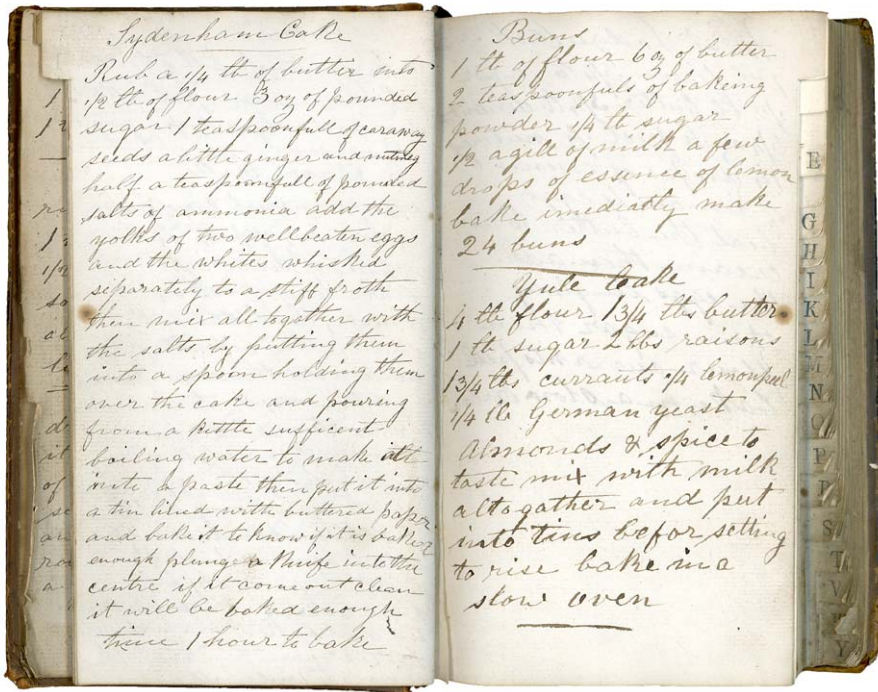 Sydenham Cake
Rub a 1/4 lb of butter into
1/2 lb of flour 3 oz of pounded
sugar 1 teaspoonfull of caraway
seeds a little ginger and nutmeg
half a teaspoonfull of pounded
salts of ammonia add the
yolks of two wellbeaten eggs
and the whites whisked
separately to a stiff froth
then mix all together with
the salts by putting them
into a spoon holding them
over the cake and pouring
from a kettle sufficent
boiling water to make all
into a paste then put it into
a tin lined with buttered paper
and bake it to know if it is baked
enough plunge a knife into the
centre if it come out clean
it will be baked enough
time 1 hour to bake
Buns
1 lb of flour 6 oz of butter
2 teaspoonfuls of bakeing
powder 1/4 lb sugar
1/2 a gill of milk a few
drops of essence of lemon
bake imediatly make
24 buns
Yule Cake
4 lb flour 1 3/4 lbs butter
1 lb sugar 2 lbs raisons
1 3/4 lbs currants 1/4 lemonpeel
1/4 lb German yeast
Almonds & spice to
taste mix with milk
altogather and put
into tins befor setting
to rise bake in a
slow oven
E
G
H
I
K
L
M
N
O
P
R
S
T
V
Y